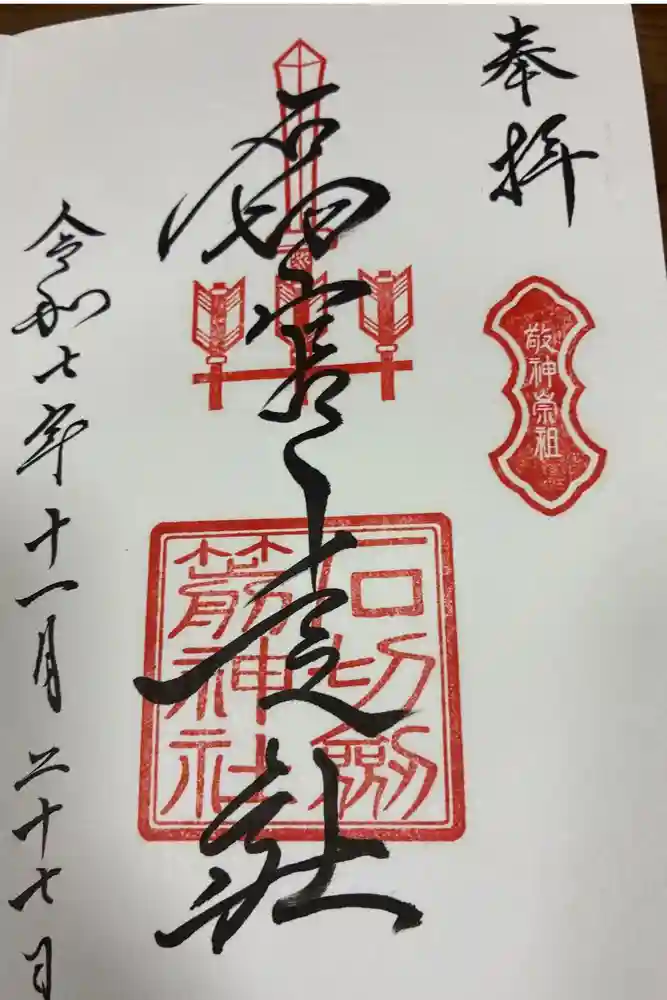 奉拝
敬神崇祖
石切宮 社
石切劔
箭神社
令和七年十一月二十七日